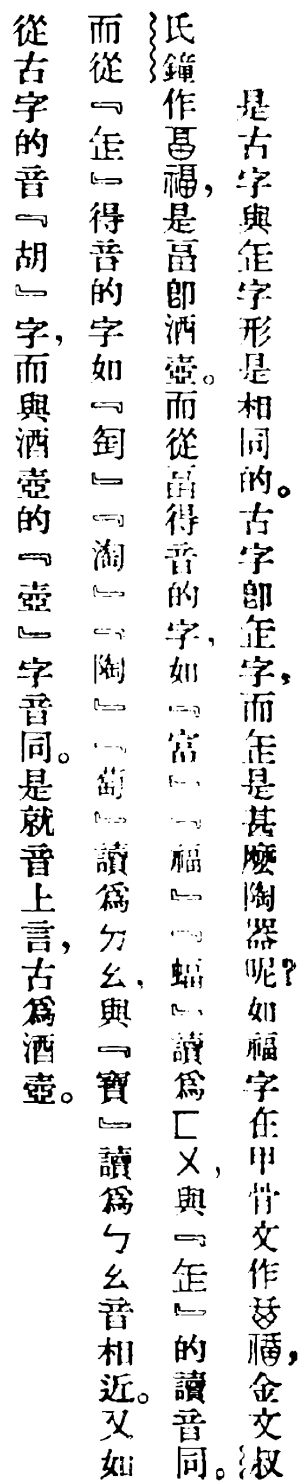 是古字與缶字形是相同的。古字卽缶字,而缶是甚麼陶器呢?如福字在甲骨文作福,金文叔
氏鐘作福,是畐卽酒壺。而從畐得音的字,如『富』『福』『蝠』讀爲ㄈㄨ,與『缶』的讀音同。
而從『缶』得音的字如『匋』『淘』『陶』『萄』讀爲ㄌㄠ,與『寶』讀爲ㄅㄠ音相近。又如
從古字的音『胡』字,而與酒壺的『壺』字音同。是就音上言,古爲酒壺。